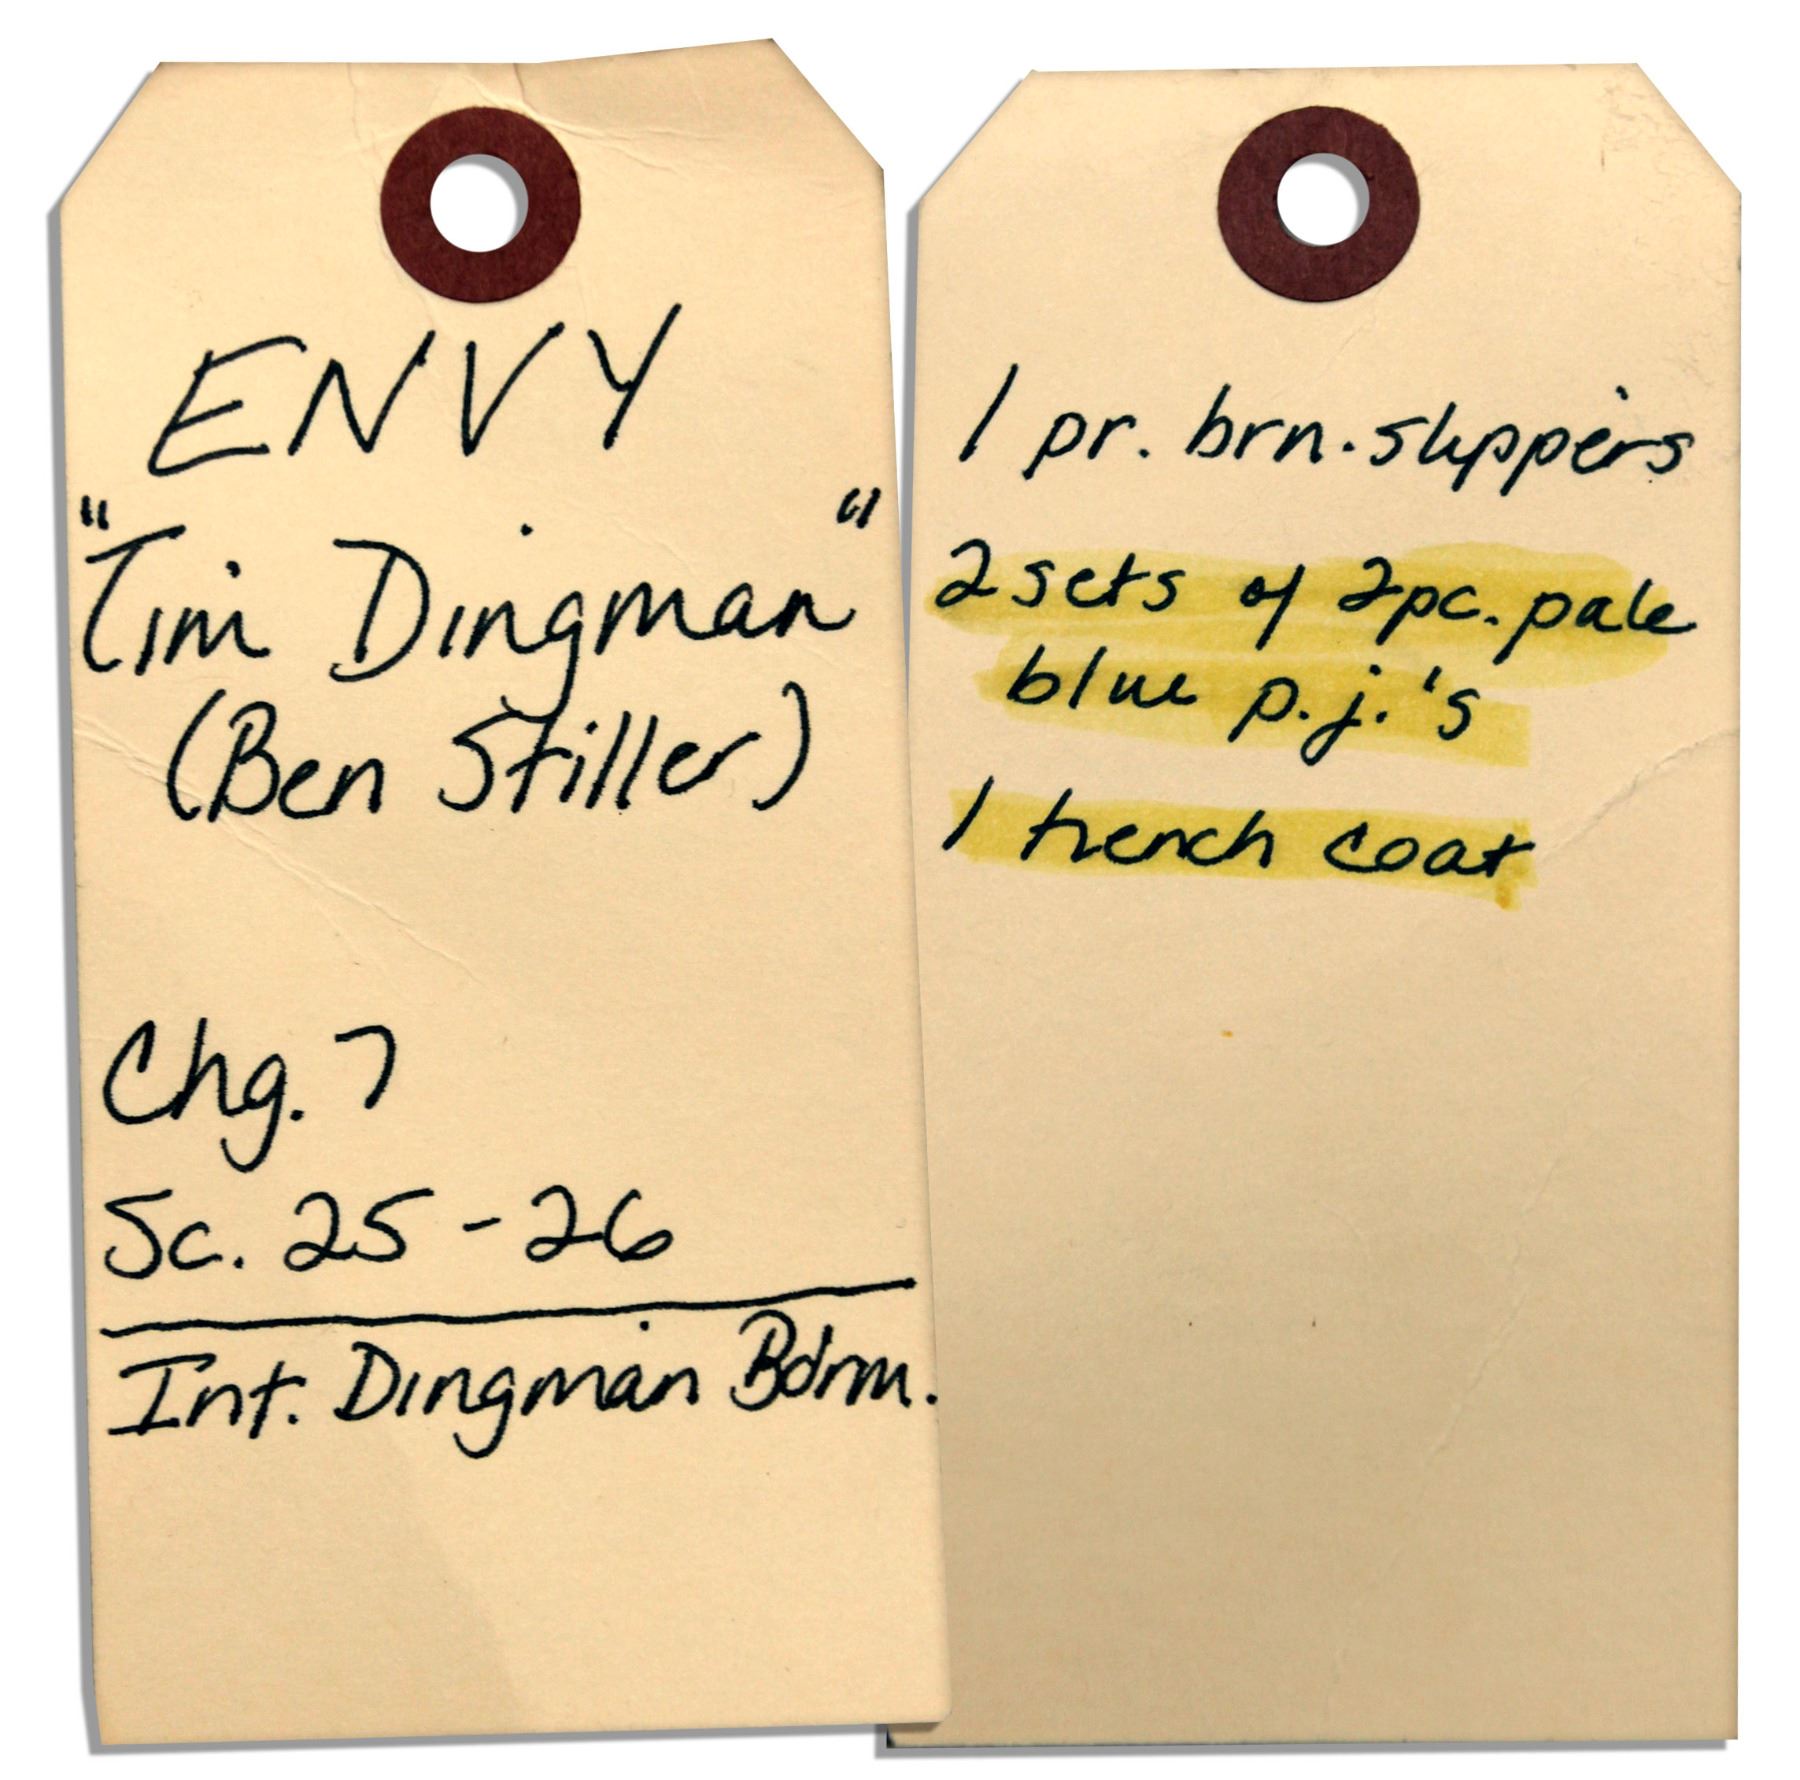 ENVY
"Tim Dingman"
(Ben Stiller)
Chg. 7
Sc. 25-26
Int. Dingman Bdrm.
1 pr. brn. slippers
2 sets of 2pc. pale
blue p.j.'s
1 trench coat